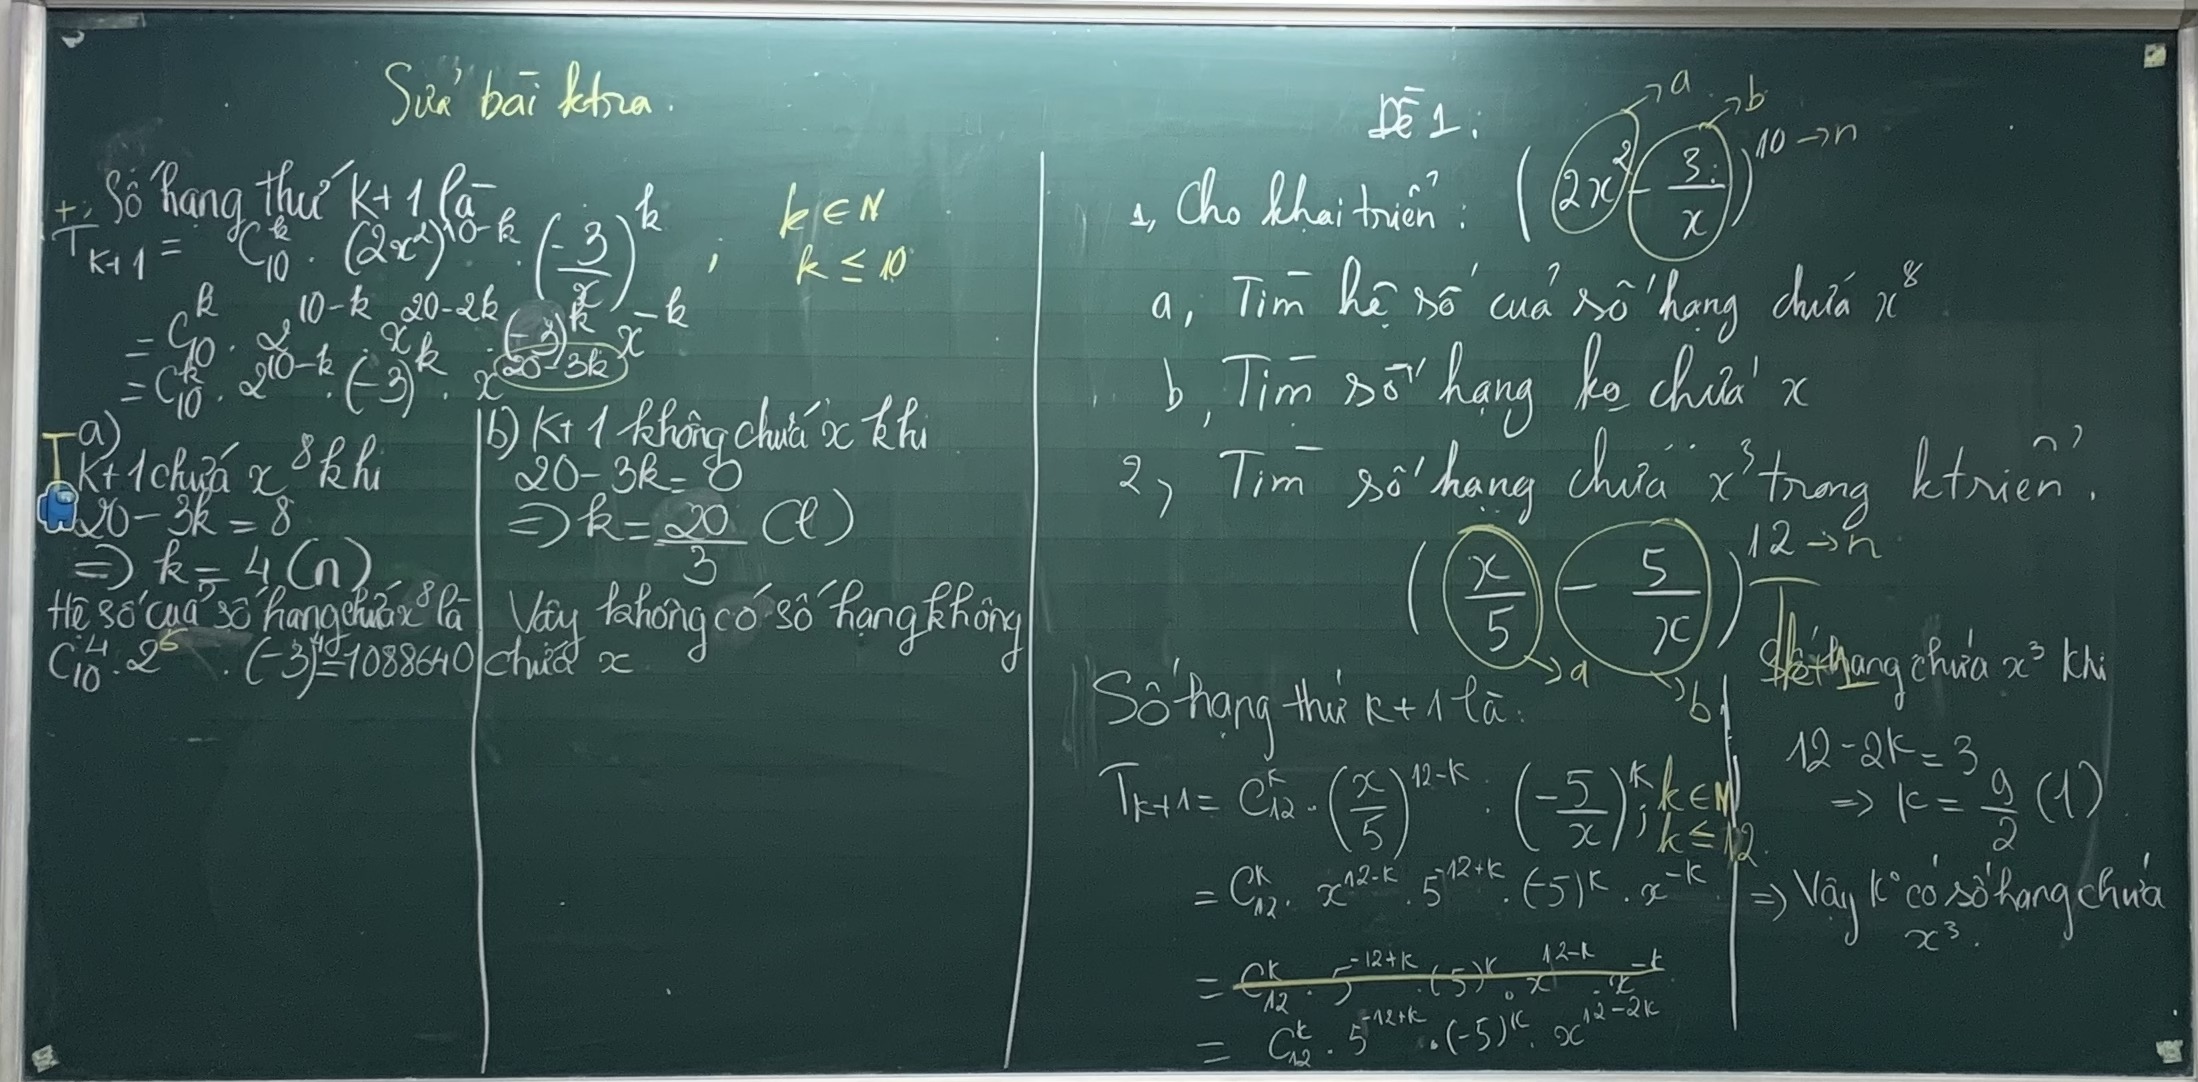 Sửa bài ktra.
+, Số hạng thứ K+1 là
T_{K+1} = C_{10}^k . (2x²)^{10-k} . (-3/x)^k ; k ∈ N
k ≤ 10
= C_{10}^k . 2^{10-k} . x^{20-2k} . (-3)^k x^{-k}
= C_{10}^k . 2^{10-k} . (-3)^k . x^{20-3k}
a)
T_{K+1} chứa x^8 khi
20-3k = 8
=> k = 4 (n)
Hệ số của số hạng chứa x^8 là
C_{10}^4 . 2^6 . (-3)^4 = 1088640
b) K+1 không chứa x khi
20-3k = 0
=> k = 20/3 (l)
Vậy không có số hạng không
chứa x
Đề 1:
a
b
1, Cho khai triển: (2x² - 3/x)^{10} → n
a, Tìm hệ số của số hạng chứa x^8
b, Tìm số hạng ko chứa x
2, Tìm số hạng chứa x³ trong ktriển.
(x/5 - 5/x)^{12} → n
a
b
Số hạng thứ K+1 là:
T_{K+1} = C_{12}^K . (x/5)^{12-K} . (-5/x)^K ; k ∈ N
k ≤ 12
= C_{12}^K . x^{12-K} . 5^{-12+K} . (-5)^K . x^{-K}
= C_{12}^K . 5^{-12+K} . (5)^K . x^{12-K} . x^{-K}
= C_{12}^K . 5^{-12+K} . (-5)^K . x^{12-2K}
T_{k+1} chứa x³ khi
12-2K = 3
=> K = 9/2 (l)
=> Vậy k° có số hạng chứa
x³.